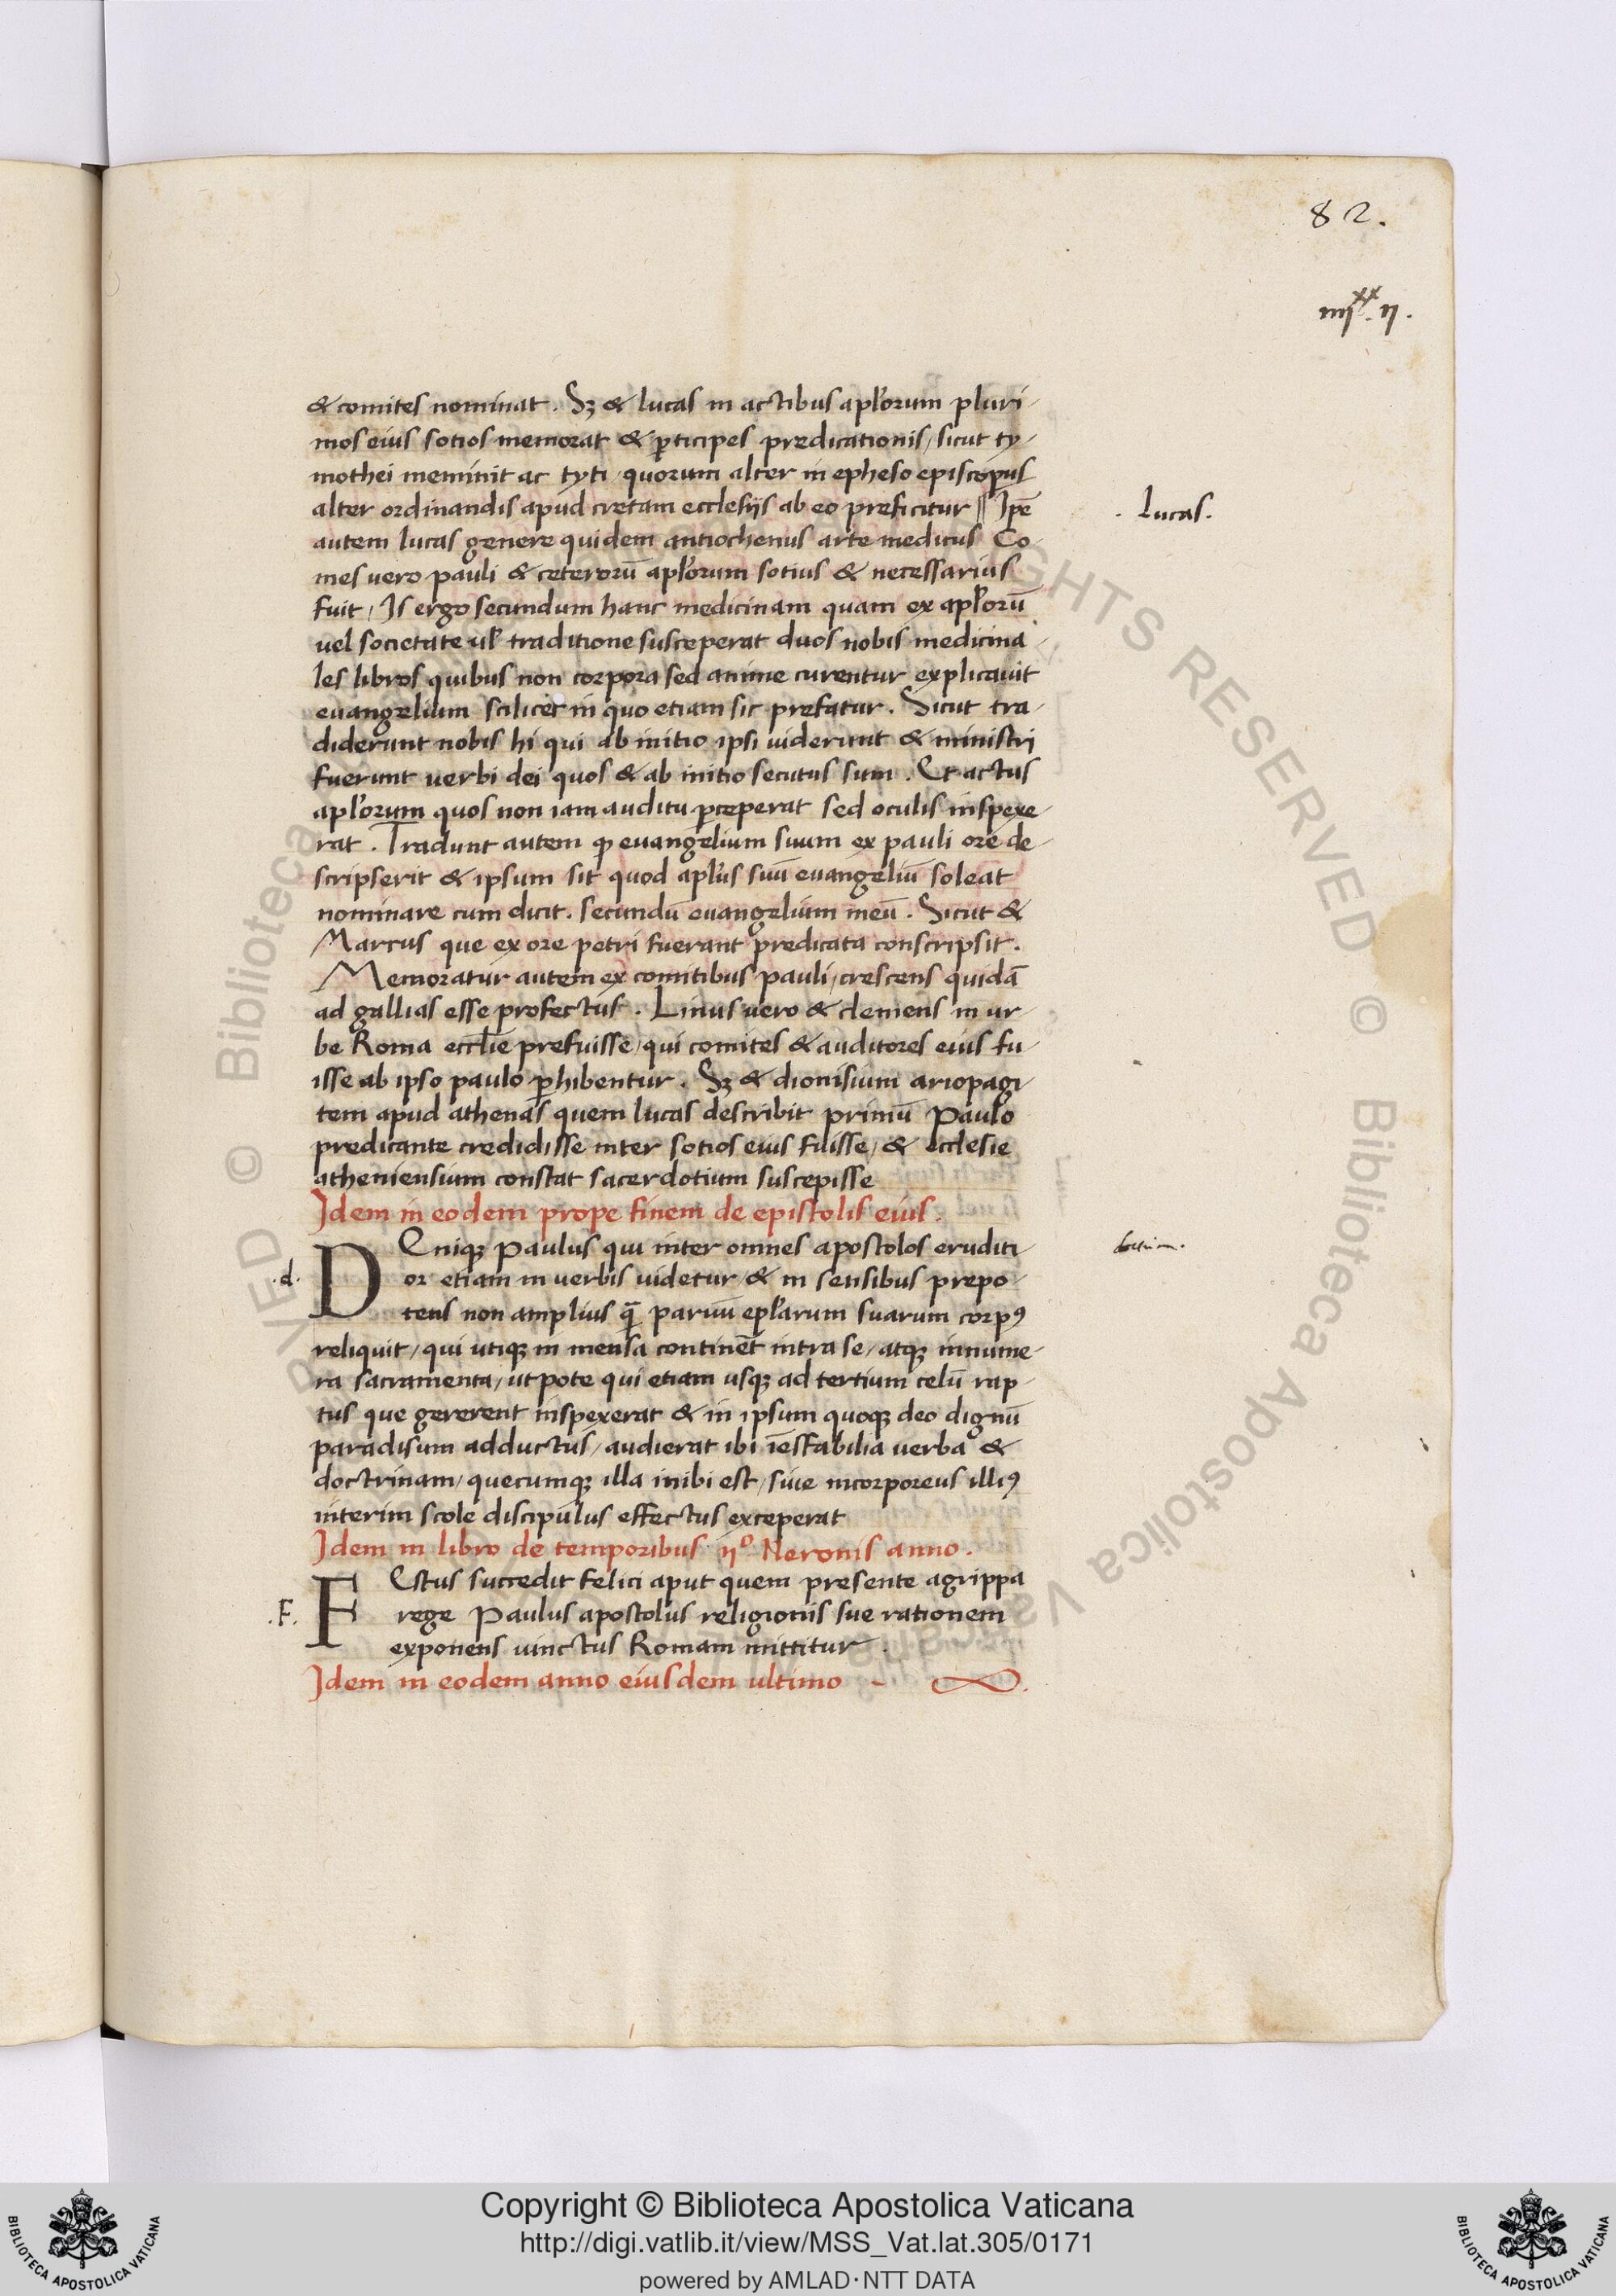 82.
iiijˣˣ.ij.
& comites nominat. Sꝫ & lucas in actibus apl'orum pluri-
mos eius sotios memorat & ꝑticipes predicationis, sicut ty-
mothei meminit ac tyti, quorum alter in epheso episcopus
alter ordinandis apud cretam ecclesijs ab eo preficitur || Ip̄e
. Lucas.
autem lucas genere quidem antiochenus arte medicus Co-
mes vero pauli & ceterorū apl'orum sotius & necessarius
fuit, Is ergo secundum hanc medicinam quam ex apl'orū
vel societate ul' traditione susceperat duos nobis medicina-
les libros quibus non corpora sed anime curentur explicavit
euangelium scilicet in quo etiam sic prefatur. Sicut tra-
diderunt nobis hi qui ab initio ipsi viderunt & ministri
fuerunt verbi dei quos & ab initio secutus sum. Et actus
apl'orum quos non iam auditu ꝑceperat sed oculis inspexe-
rat. Tradunt autem ꝙ euangelium suum ex pauli ore de-
scripserit & ipsum sit quod apl'us suū euangeliū soleat
nominare cum dicit. secundū euangelium meū. Sicut &
Marcus que ex ore petri fuerant predicata conscripsit.
Memoratur autem ex comitibus pauli, crescens quidā
ad gallias esse profectus. Linus vero & clemens in ur-
be Roma eccl̄ie prefuisse, qui comites & auditores eius fu-
isse ab ipso paulo ꝑhibentur. Sꝫ & dionisium ariopagi-
tem apud athenas quem lucas describit primū Paulo
predicante credidisse inter sotios eius fuisse, & ecclesie
atheniensium constat sacerdotium suscepisse
Idem in eodem prope finem de epistolis eius.
.d. DEniqꝫ Paulus qui inter omnes apostolos eruditi-
or etiam in verbis videtur, & in sensibus prepo-
tens non amplius q̄ parvū epl'arum suarum corpꝰ
reliquit, qui utiqꝫ in mensa continēt intra se, atqꝫ innume-
ra sacramenta, ut pote qui etiam usqꝫ ad tertium celū rap-
tus que gererent inspexerat & in ipsum quoqꝫ deo dignū
paradisum adductus, audierat ibi īeffabilia verba &
doctrinam, quecumqꝫ illa inibi est, sive incorporeus illiꝰ
interim scole discipulus effectus exceperat
Idem in libro de temporibus ijº. Neronis anno.
.F. FEstus succedit felici aput quem presente agrippa
rege Paulus apostolus religionis sue rationem
exponens vinctus Romam mittitur.
Idem in eodem anno eiusdem ultimo -
Copyright © Biblioteca Apostolica Vaticana
http://digi.vatlib.it/view/MSS_Vat.lat.305/0171
powered by AMLAD·NTT DATA
BIBLIOTECA APOSTOLICA VATICANA
BIBLIOTECA APOSTOLICA VATICANA